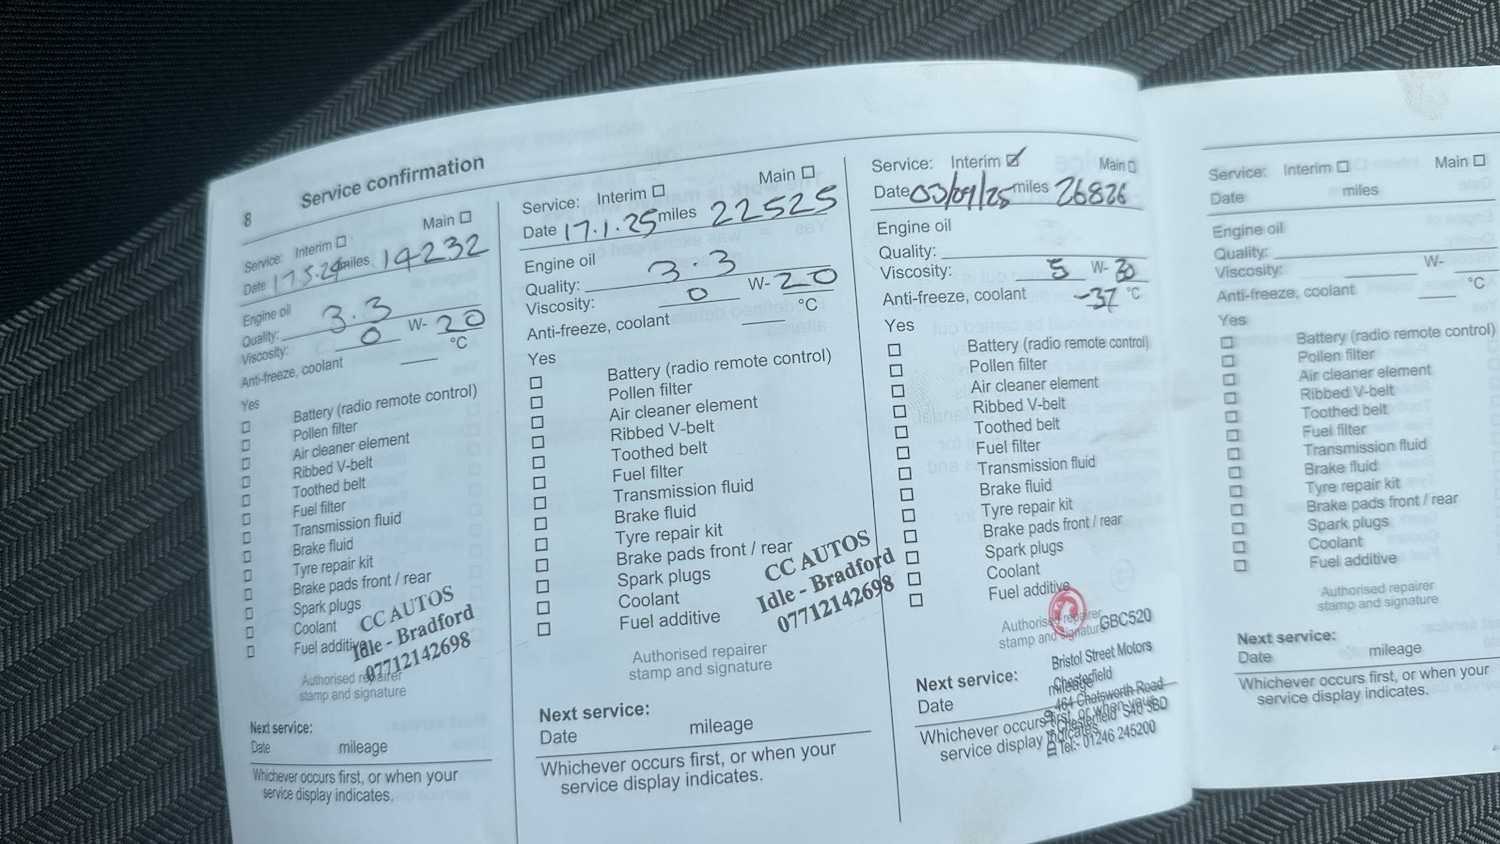 8 Service confirmation
Service: Interim ☐ Main ☐
Date 17.5.24 miles 14232
Engine oil
Quality: 3.3
Viscosity: 0 W- 20
Anti-freeze, coolant °C
Yes
☐ Battery (radio remote control)
☐ Pollen filter
☐ Air cleaner element
☐ Ribbed V-belt
☐ Toothed belt
☐ Fuel filter
☐ Transmission fluid
☐ Brake fluid
☐ Tyre repair kit
☐ Brake pads front / rear
☐ Spark plugs
☐ Coolant
☐ Fuel additive
CC AUTOS
Idle - Bradford
07712142698
Authorised repairer
stamp and signature
Next service:
Date mileage
Whichever occurs first, or when your
service display indicates.
Service: Interim ☐ Main ☐
Date 17.1.25 miles 22525
Engine oil
Quality: 3.3
Viscosity: 0 W- 20
Anti-freeze, coolant °C
Yes
☐ Battery (radio remote control)
☐ Pollen filter
☐ Air cleaner element
☐ Ribbed V-belt
☐ Toothed belt
☐ Fuel filter
☐ Transmission fluid
☐ Brake fluid
☐ Tyre repair kit
☐ Brake pads front / rear
☐ Spark plugs
☐ Coolant
☐ Fuel additive
CC AUTOS
Idle - Bradford
07712142698
Authorised repairer
stamp and signature
Next service:
Date mileage
Whichever occurs first, or when your
service display indicates.
Service: Interim ☑ Main ☐
Date 03/09/25 miles 26826
Engine oil
Quality:
Viscosity: 5 W- 30
Anti-freeze, coolant -37 °C
Yes
☐ Battery (radio remote control)
☐ Pollen filter
☐ Air cleaner element
☐ Ribbed V-belt
☐ Toothed belt
☐ Fuel filter
☐ Transmission fluid
☐ Brake fluid
☐ Tyre repair kit
☐ Brake pads front / rear
☐ Spark plugs
☐ Coolant
☐ Fuel additive
Authorised repairer
stamp and signature GBC520
Bristol Street Motors
Chesterfield
464 Chatsworth Road
Chesterfield S40 3BD
Tel:- 01246 245200
Next service:
Date mileage
Whichever occurs first, or when your
service display indicates.
Service: Interim ☐ Main ☐
Date miles
Engine oil
Quality:
Viscosity: W-
Anti-freeze, coolant °C
Yes
☐ Battery (radio remote control)
☐ Pollen filter
☐ Air cleaner element
☐ Ribbed V-belt
☐ Toothed belt
☐ Fuel filter
☐ Transmission fluid
☐ Brake fluid
☐ Tyre repair kit
☐ Brake pads front / rear
☐ Spark plugs
☐ Coolant
☐ Fuel additive
Authorised repairer
stamp and signature
Next service:
Date mileage
Whichever occurs first, or when your
service display indicates.